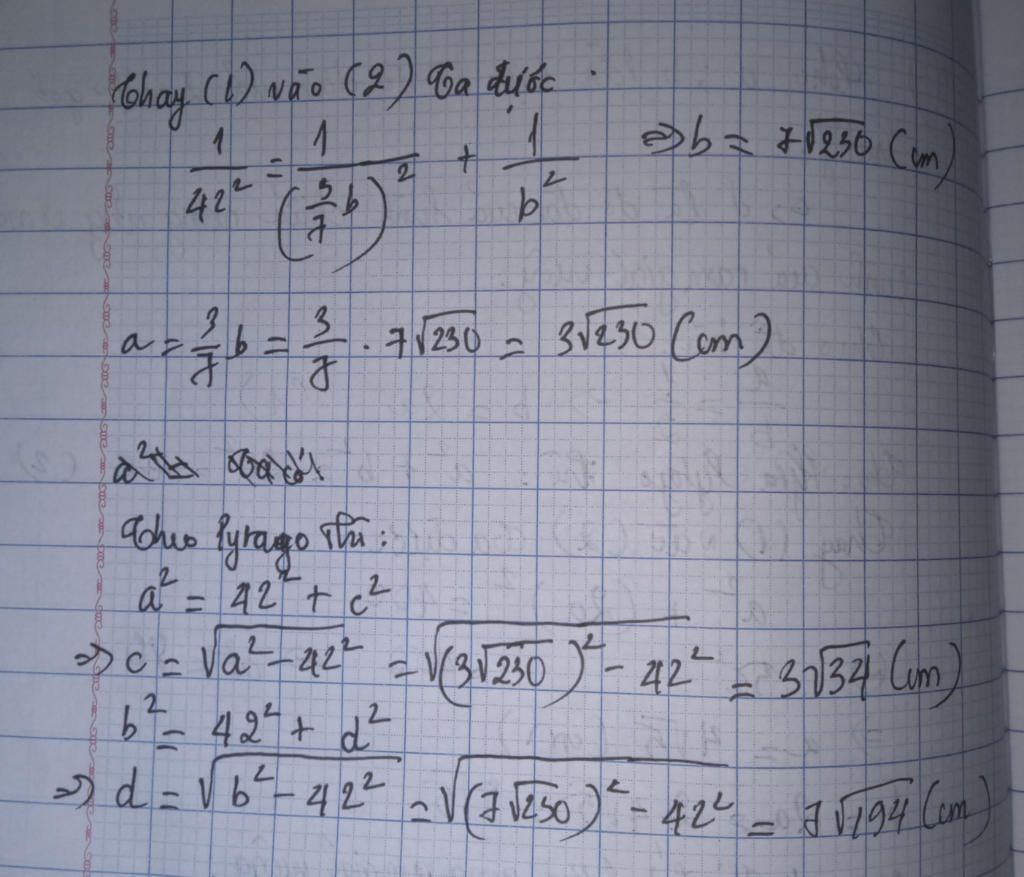 Thay (1) vào (2) ta được
1/42² = 1/(3/7 b)² + 1/b² => b = 7√230 (cm)
a = 3/7 b = 3/7 . 7√230 = 3√230 (cm)
a²
Theo Pytago thì:
a² = 42² + c²
=> c = √(a² - 42²) = √((3√230)² - 42²) = 3√34 (cm)
b² = 42² + d²
=> d = √(b² - 42²) = √((7√230)² - 42²) = 7√194 (cm)